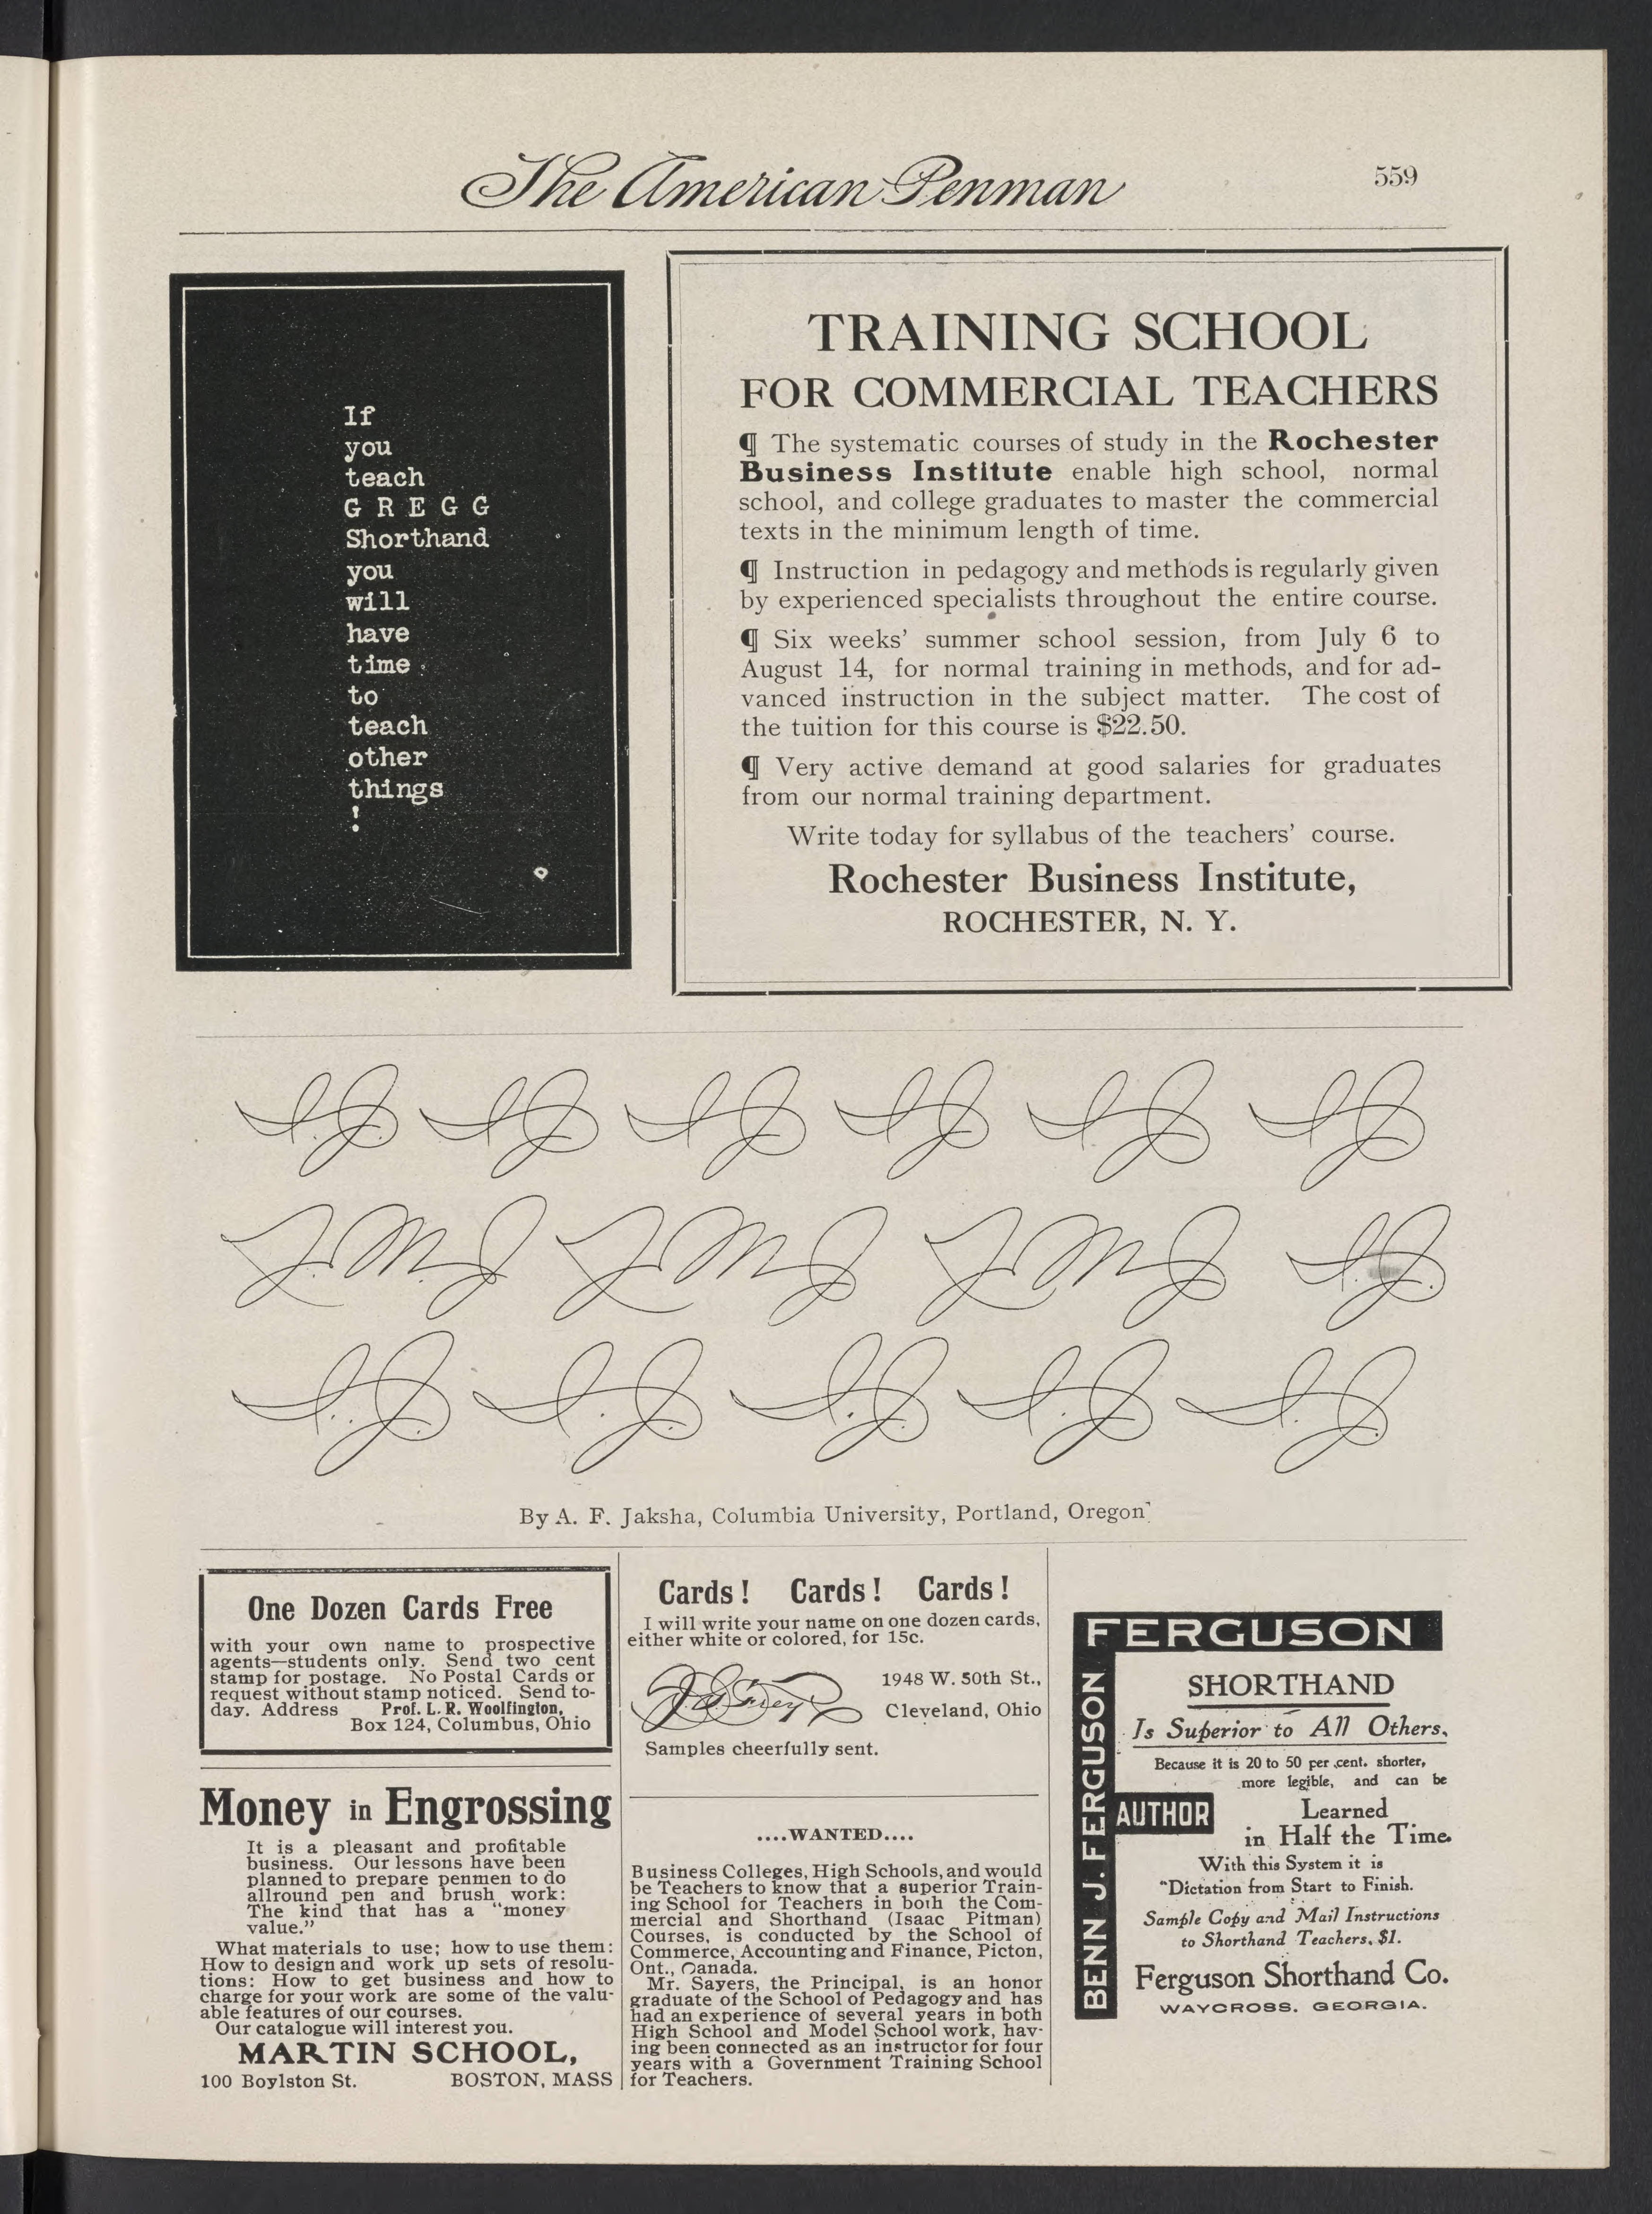 The American Penman
559
If
you
teach
G R E G G
Shorthand
you
will
have
time
to
teach
other
things
!
TRAINING SCHOOL
FOR COMMERCIAL TEACHERS
¶ The systematic courses of study in the Rochester
Business Institute enable high school, normal
school, and college graduates to master the commercial
texts in the minimum length of time.
¶ Instruction in pedagogy and methods is regularly given
by experienced specialists throughout the entire course.
¶ Six weeks' summer school session, from July 6 to
August 14, for normal training in methods, and for ad-
vanced instruction in the subject matter. The cost of
the tuition for this course is $22.50.
¶ Very active demand at good salaries for graduates
from our normal training department.
Write today for syllabus of the teachers' course.
Rochester Business Institute,
ROCHESTER, N. Y.
By A. F. Jaksha, Columbia University, Portland, Oregon
One Dozen Cards Free
with your own name to prospective
agents—students only. Send two cent
stamp for postage. No Postal Cards or
request without stamp noticed. Send to-
day. Address Prof. L. R. Woolfington,
Box 124, Columbus, Ohio
Money in Engrossing
It is a pleasant and profitable
business. Our lessons have been
planned to prepare penmen to do
allround pen and brush work:
The kind that has a "money
value."
What materials to use; how to use them:
How to design and work up sets of resolu-
tions: How to get business and how to
charge for your work are some of the valu-
able features of our courses.
Our catalogue will interest you.
MARTIN SCHOOL,
100 Boylston St. BOSTON, MASS
Cards! Cards! Cards!
I will write your name on one dozen cards,
either white or colored, for 15c.
1948 W. 50th St.,
Cleveland, Ohio
Samples cheerfully sent.
....WANTED....
Business Colleges, High Schools, and would
be Teachers to know that a superior Train-
ing School for Teachers in both the Com-
mercial and Shorthand (Isaac Pitman)
Courses, is conducted by the School of
Commerce, Accounting and Finance, Picton,
Ont., Canada.
Mr. Sayers, the Principal, is an honor
graduate of the School of Pedagogy and has
had an experience of several years in both
High School and Model School work, hav-
ing been connected as an instructor for four
years with a Government Training School
for Teachers.
FERGUSON
BENN J. FERGUSON
AUTHOR
SHORTHAND
Is Superior to All Others,
Because it is 20 to 50 per cent. shorter,
more legible, and can be
Learned
in Half the Time.
With this System it is
"Dictation from Start to Finish.
Sample Copy and Mail Instructions
to Shorthand Teachers, $1.
Ferguson Shorthand Co.
WAYCROSS. GEORGIA.